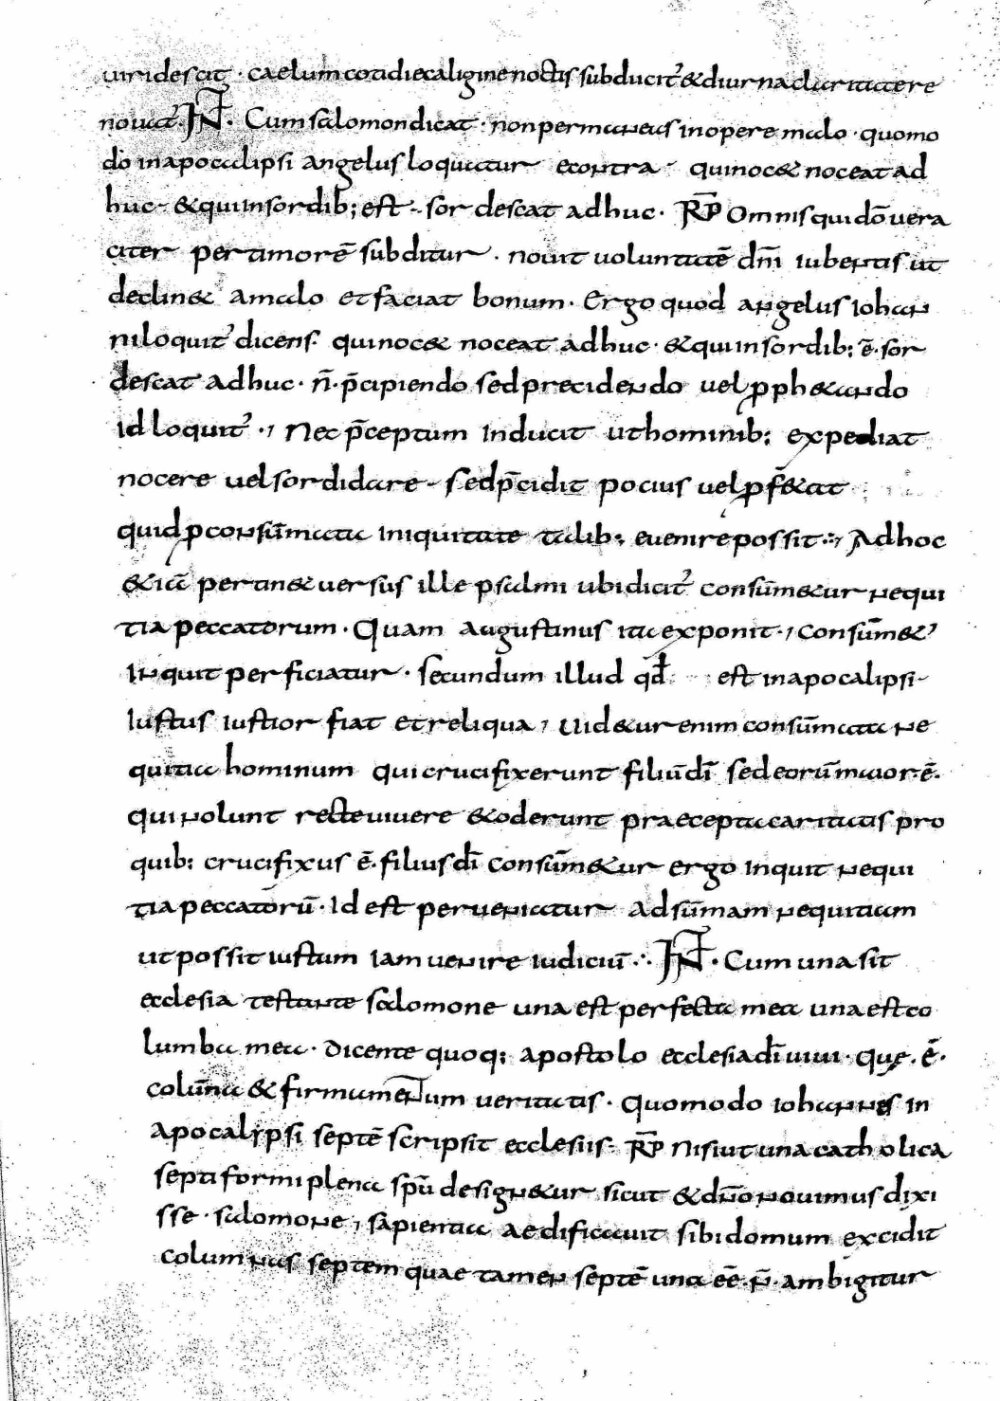 uiridescit · caelum cotidie caligine noctis subducit̉ & diurna claritate re
nouat̉ · IN̄T · Cum salomon dicat · non permaneas in opere malo · quomo
do in apocalipsi angelus loquatur econtra · qui noc& noceat ad
huc · & qui in sordib; est · sordescat adhuc · R̄P Omnis qui dō uera
citer per amorē subditur · nouit uoluntatē dn̄i iubentis ut
declin& a malo et faciat bonum · Ergo quod angelus Iohan
ni loquit̉ dicens · qui noc& noceat adhuc · & qui in sordib; ē · sor
descat adhuc · n̄ · p̄cipiendo sed precidendo uel ꝓph&ando
id loquit̉ · , Nec p̄ceptum inducit ut hominib; expediat
nocere uel sordidare · sed p̄cidit pocius uel ꝓf&at
quid ꝓ consūmata iniquitate talib; euenire possit ·:, Ad hoc
& iā pertin& uersus ille psalmi ubi dicit̉ consūm&ur nequi
tia peccatorum · Quam augustinus ita exponit · , Consūm&̉
Inquit perficiatur · secundum illud qd̄ est in apocalipsi ·
Iustus iustior fiat et reliqua , Uid&ur enim consūmata ne
quitia hominum qui crucifixerunt filiū dī sed eorū maior · ē ·
qui nolunt recte uiuere & oderunt praecepta caritatis pro
quib; crucifixus ē · filius dī consūm&ur ergo inquit nequi
tia peccatorū · Id est perueniatur ad sūmam nequitiam
ut possit iustum iam uenire iudiciū ·:· IN̄T · Cum una sit
ecclesia testante salomone una est perfecta mea una est co
lumba mea · dicente quoq; apostolo ecclesia dī uiui · Quę · ē ·
colūna & firmamentum ueritatis · Quomodo Iohannes in
apocalypsi septē scripsit ecclesiis · R̄P Nisi ut una catholica
septiformi plena spū design&ur sicut & dn̄o nouimus dixi
sse · salomone , sapientia aedificauit sibi domum excidit
columnas septem quae tamen septē una eē · n̄ · ambigitur